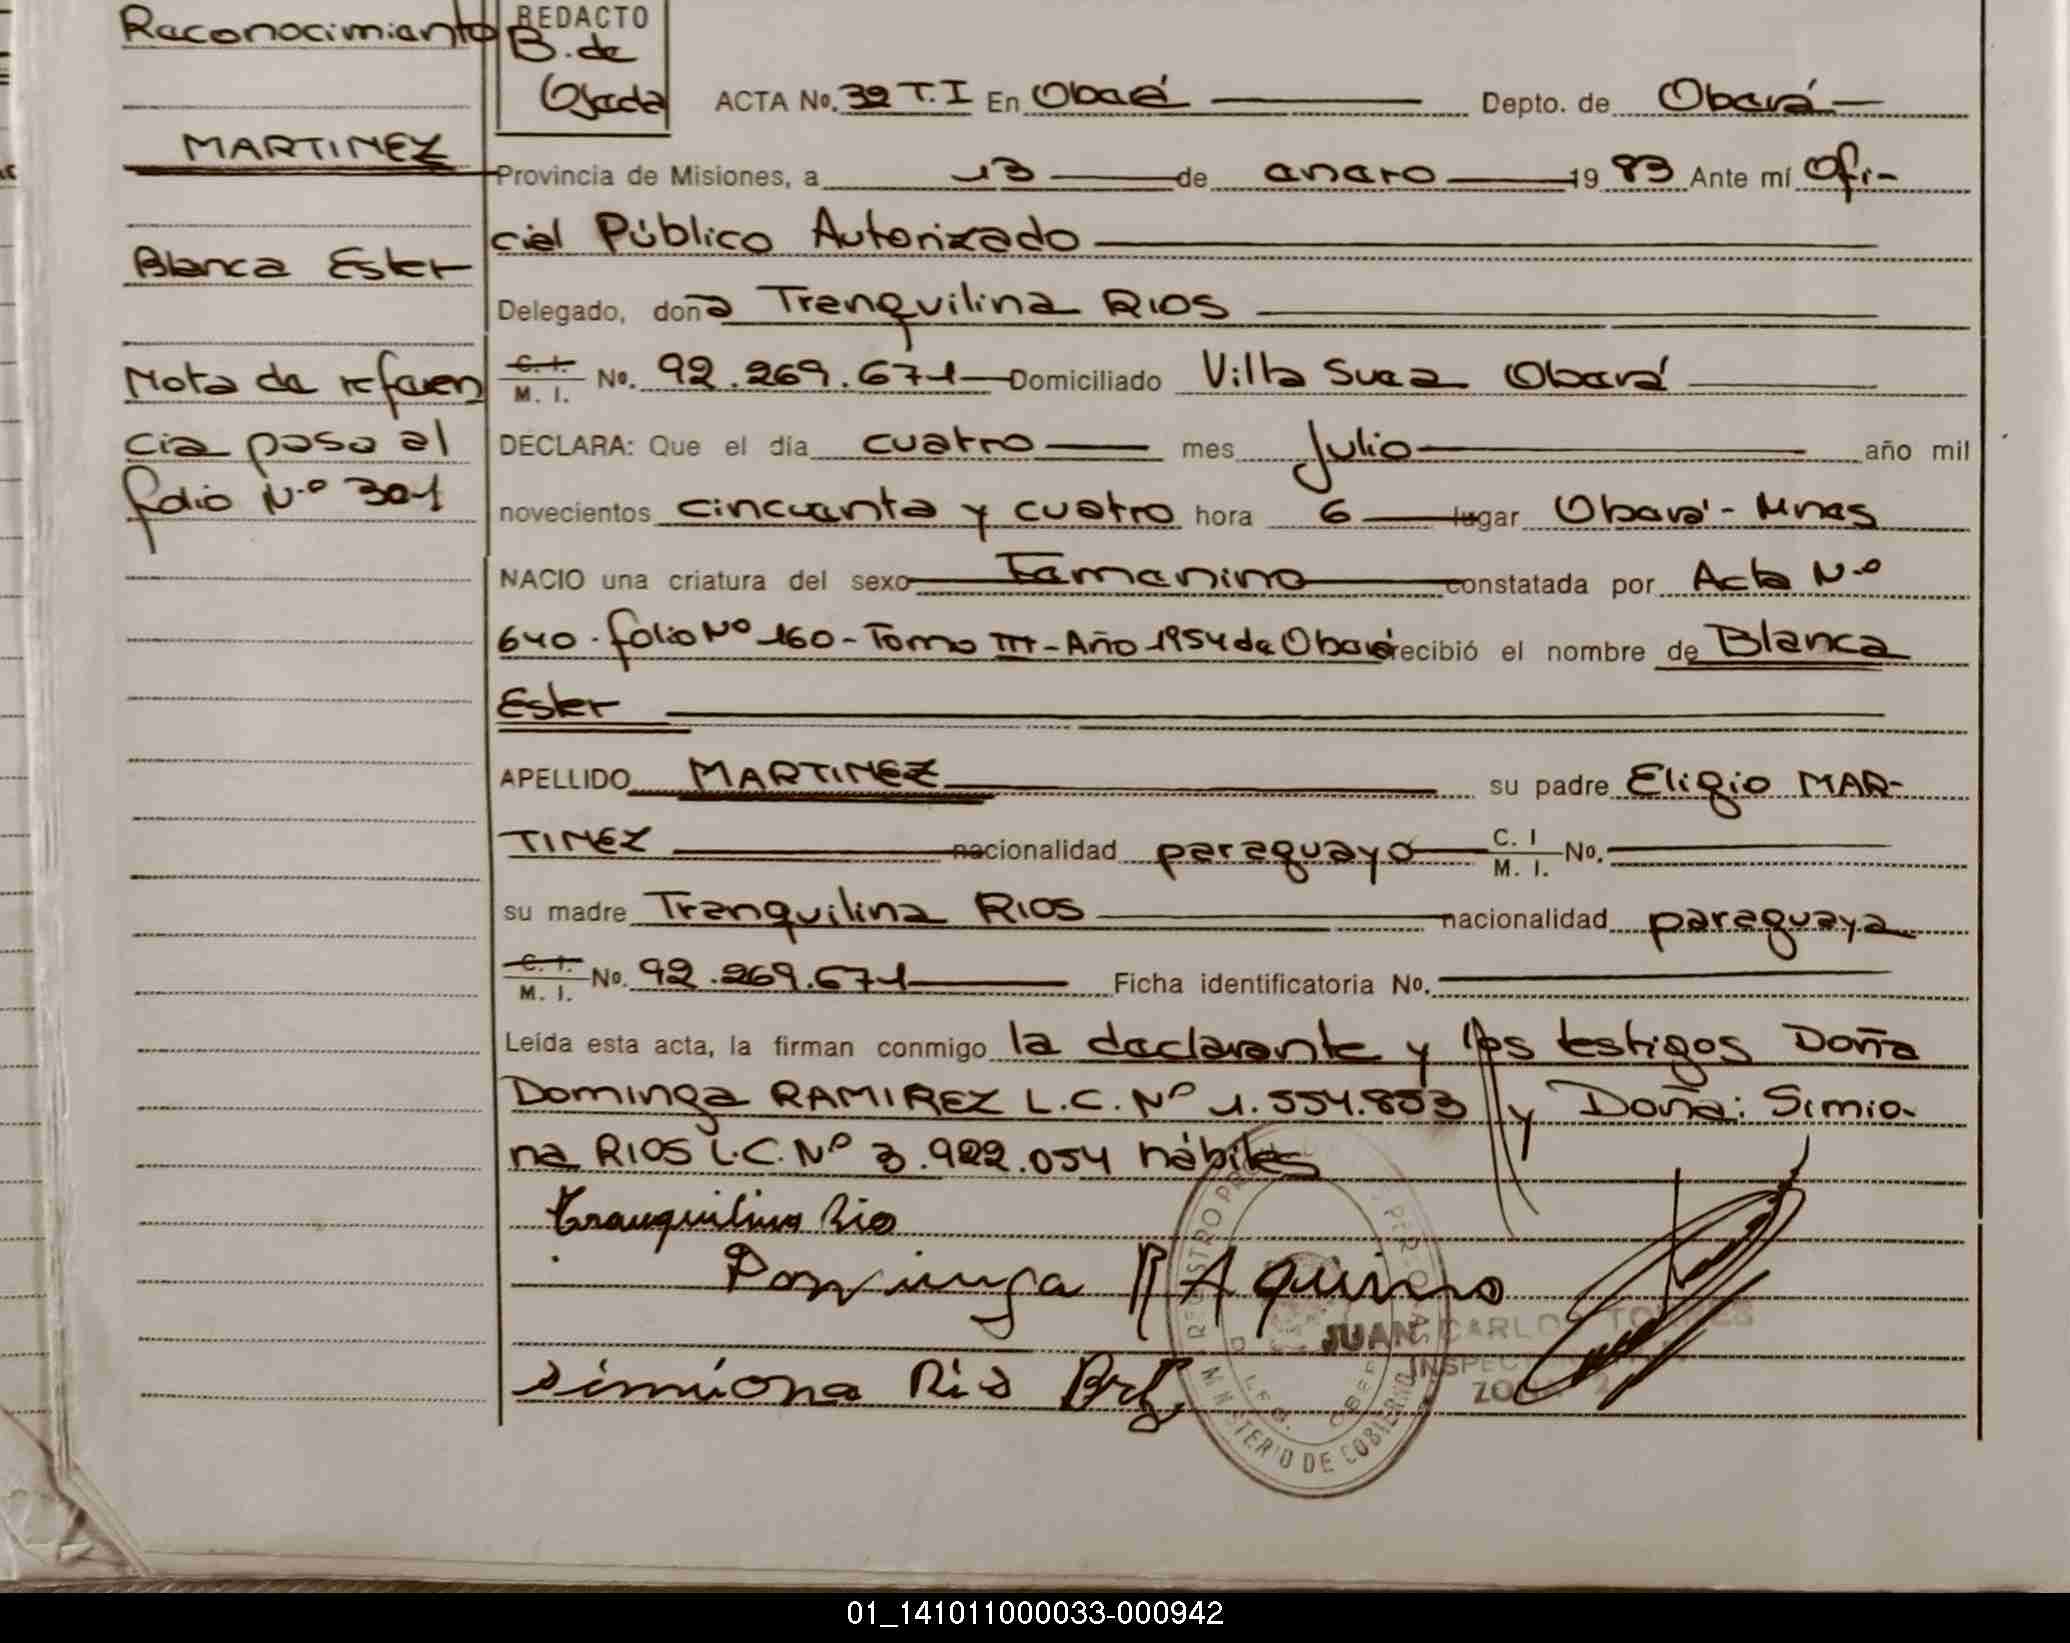 Reconocimiento
MARTINEZ
Blanca Ester
Nota de referen
cia paso al
folio N.º 301
REDACTO
B. de
ACTA No. 32 T.I En Oberá Depto. de Oberá
Provincia de Misiones, a 13 de enero 19 83 Ante mí Ofi-
cial Público Autorizado
Delegado, doña Tranquilina RIOS
C. I. M. I. No. 92.269.671 Domiciliado Villa Oberá
DECLARA: Que el día cuatro mes Julio año mil
novecientos cincuenta y cuatro hora 6 lugar Oberá - Mnes
NACIO una criatura del sexo Femenino constatada por Acta N.º
640 - folio Nº 160 - Tomo III - Año 1954 de Oberá recibió el nombre de Blanca
Ester
APELLIDO MARTINEZ su padre Eligio MAR-
TINEZ nacionalidad paraguayo C. I M. I. No.
su madre Tranquilina RIOS nacionalidad paraguaya
C. I. M. I. No. 92.269.671 Ficha identificatoria No.
Leída esta acta, la firman conmigo la declarante y los testigos Doña
Dominga RAMIREZ L.C. Nº 1.554.853 y Doña: Simio-
na RIOS L.C. Nº 3.922.054 hábiles
Tranquilina Rio
Dominga R Aquino
JUAN CARLOS TORRES
simiona Rio
MINISTERIO DE GOBIERNO
01_141011000033-000942